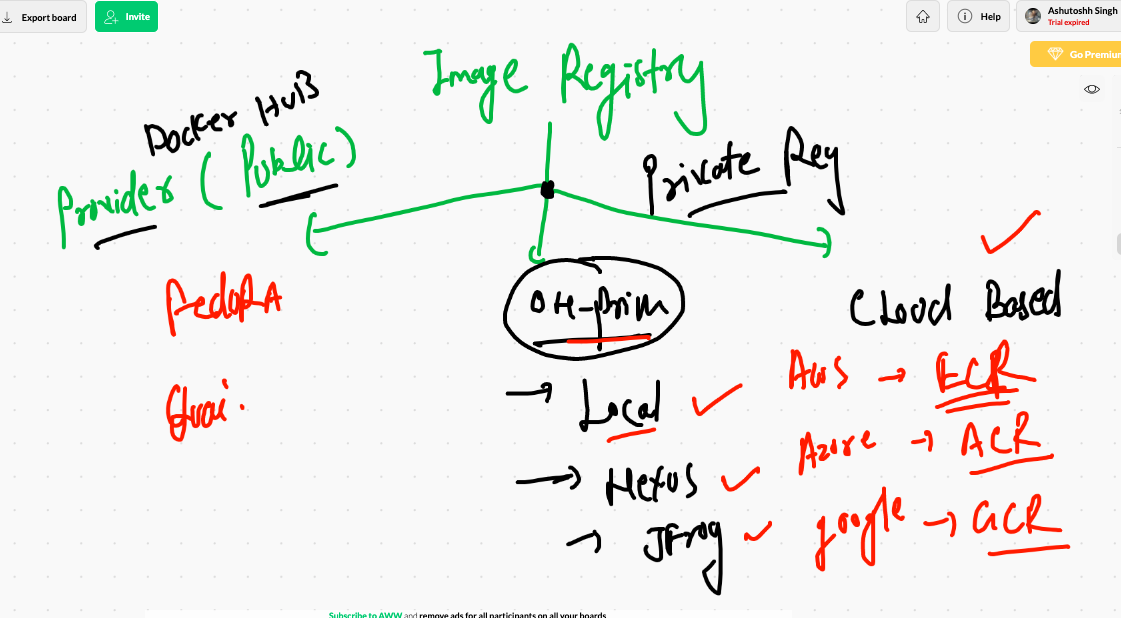 Export board
Invite
Help
Ashutoshh Singh
Trial expired
Go Premium
Image Registry
Docker HuB
Provider (Public)
Private Reg
FedoRA
Quai.
ON-Prim
Local
Nexus
JFrog
CLoud Based
AWS → ECR
Azure → ACR
google → GCR
Subscribe to AWW and remove ads for all participants on all your boards